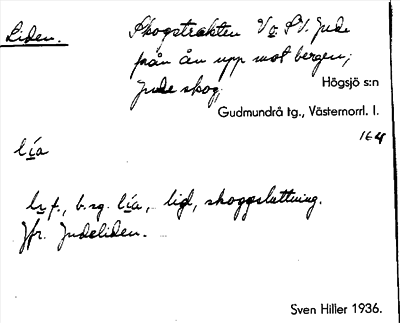 Liden.
Skogstrakten V o SV. Jude
från ån upp mot bergen;
Jude skog.
Högsjö s:n
Gudmundrå tg., Västernorrl. l.
164
lía
b.sg. lía, lid, skogssluttning.
Jfr. Judeliden.
Sven Hiller 1936.